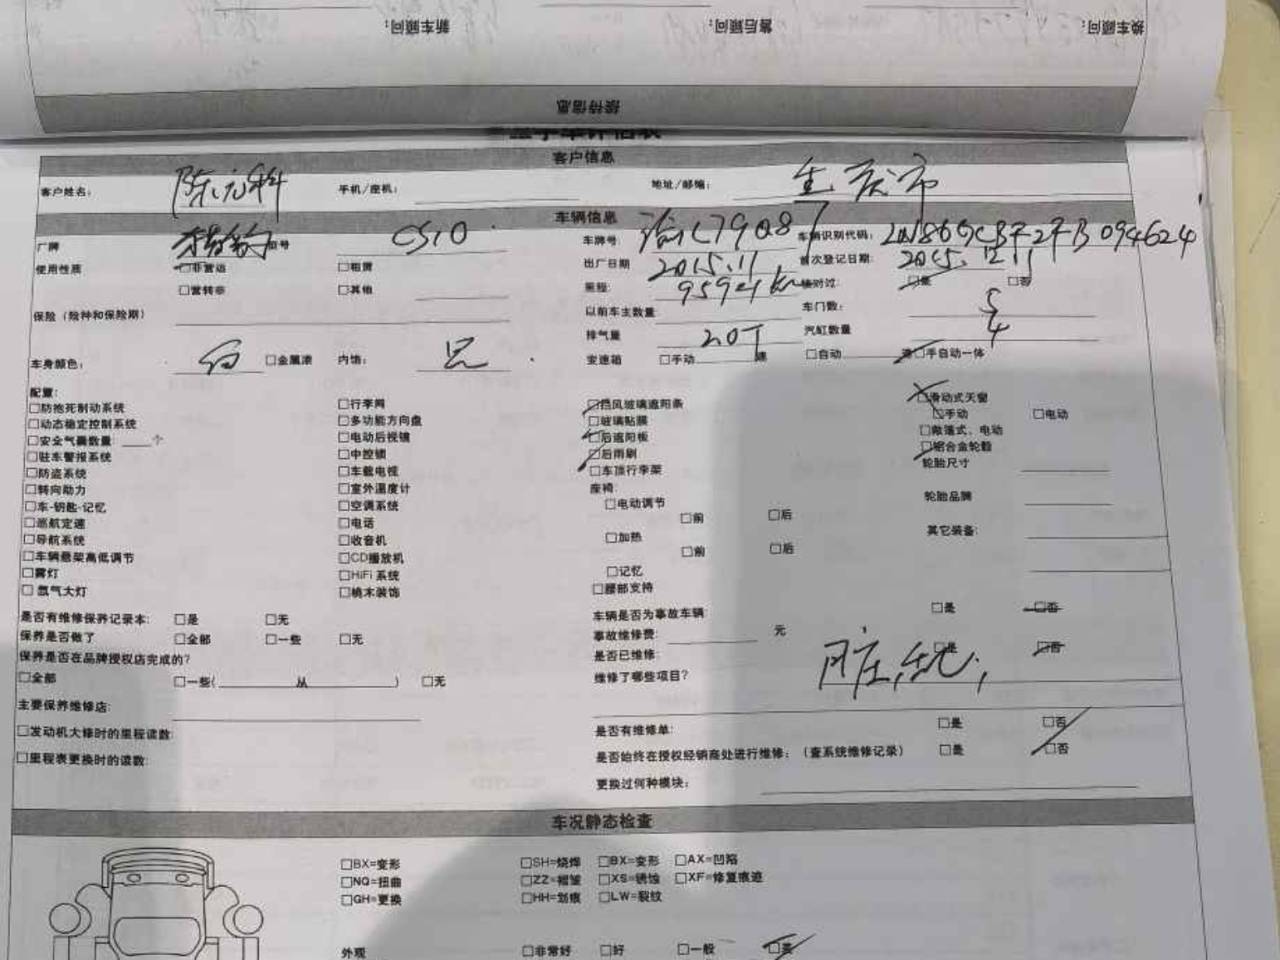 新车顾问：
售后顾问：
换车顾问：
接待信息
客户信息
客户姓名： 手机/座机： 地址/邮编：
车辆信息
厂牌 猎豹 型号 CS10 车牌号 车辆识别代码：
使用性质 □非营运 □租赁 出厂日期 2015.11 首次登记日期：
□营转非 □其他 里程： 核对过： □是 □否
保险（险种和保险期） 以前车主数量 车门数： 5
排气量 2.0T 汽缸数量 4
车身颜色： 白 □金属漆 内饰： 黑 变速箱 □手动 速 □自动 □手自动一体
配置：
□防抱死制动系统 □行李网 □挡风玻璃遮阳条 □滑动式天窗
□动态稳定控制系统 □多功能方向盘 □玻璃贴膜 □手动 □电动
□安全气囊数量： 个 □电动后视镜 □后遮阳板 □敞篷式、电动
□驻车警报系统 □中控锁 □后雨刷 □铝合金轮毂
□防盗系统 □车载电视 □车顶行李架 轮胎尺寸
□转向助力 □室外温度计 座椅：
□车-钥匙-记忆 □空调系统 □电动调节 轮胎品牌
□巡航定速 □电话 □前 □后
□导航系统 □收音机 □加热 其它装备：
□车辆悬架高低调节 □CD播放机 □前 □后
□雾灯 □HiFi 系统 □记忆
□氙气大灯 □桃木装饰 □腰部支持
是否有维修保养记录本： □是 □无 车辆是否为事故车辆： □是 □否
保养是否做了 □全部 □一些 □无 事故维修费： 元
保养是否在品牌授权店完成的？ 是否已维修： □是 □否
□全部 □一些( 从 ) □无 维修了哪些项目？
主要保养维修店：
□发动机大修时的里程读数： 是否有维修单： □是 □否
□里程表更换时的读数： 是否始终在授权经销商处进行维修：（查系统维修记录） □是 □否
更换过何种模块：
车况静态检查
□BX=变形 □SH=烧焊 □BX=变形 □AX=凹陷
□NQ=扭曲 □ZZ=褶皱 □XS=锈蚀 □XF=修复痕迹
□GH=更换 □HH=划痕 □LW=裂纹
外观 □非常好 □好 □一般 □差